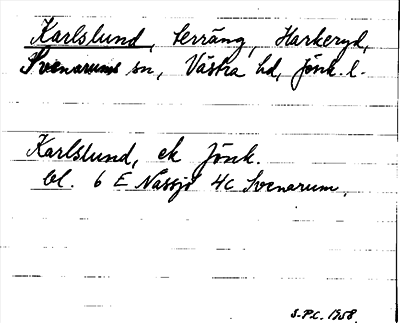 Karlslund, terräng, Harkeryd,
Svenarums sn, Västra hd, Jönk. l.
Karlslund, ek Jönk.
bl. 6 E Nässjö 4c Svenarum.
S-P.C. 1958.